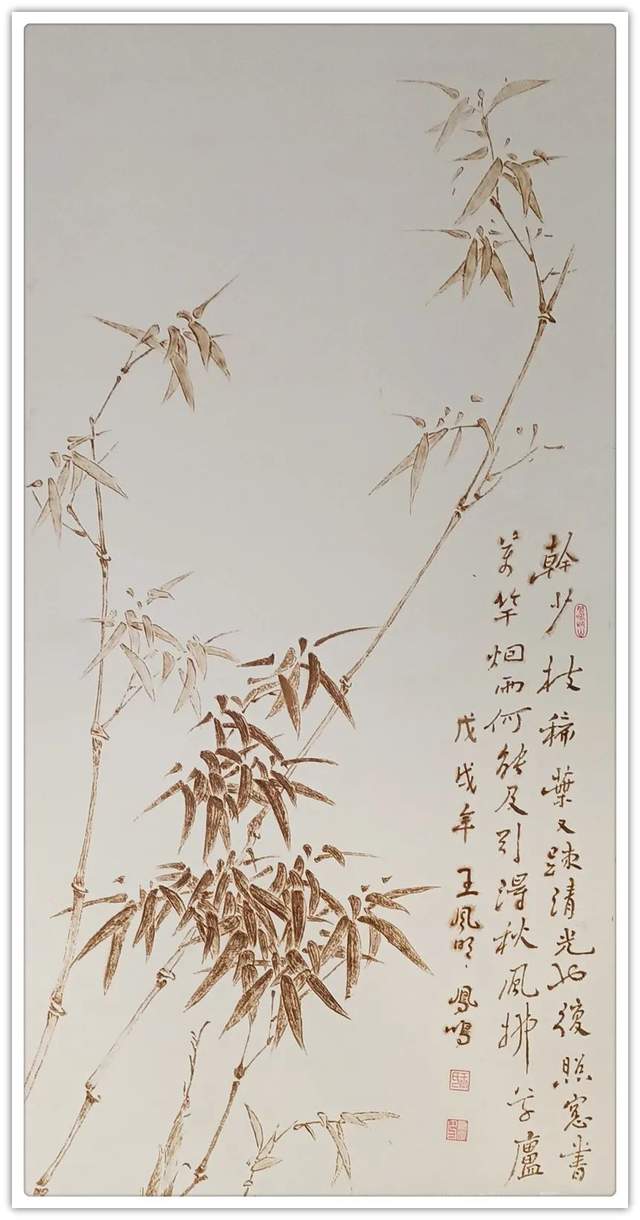 幹少枝稀葉又踈清光也復照窓書
萬竿烟雨何能及引得秋風拂草廬
戊戌年王凤明、鳳鳴